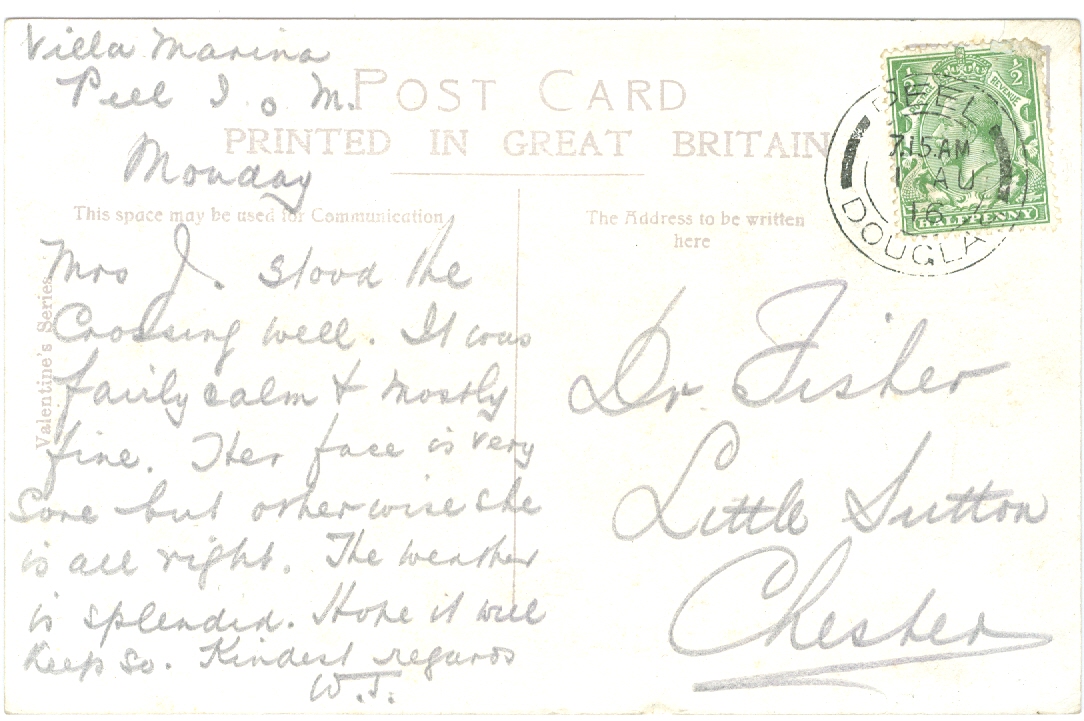 Villa Marina
Peel I o M.
Monday
POST CARD
PRINTED IN GREAT BRITAIN
This space may be used for Communication
The Address to be written
here
Valentine's Series
Mrs J. stood the
Crossing well. It was
fairly calm & mostly
fine. Her face is very
Sore but otherwise she
is all right. The weather
is splendid. Hope it will
Keep so. Kindest regards
W.J.
Dr. Fisher
Little Sutton
Chester
½ ½
REVENUE
HALFPENNY
PEEL
7.15 AM
1 AU
16
DOUGLA